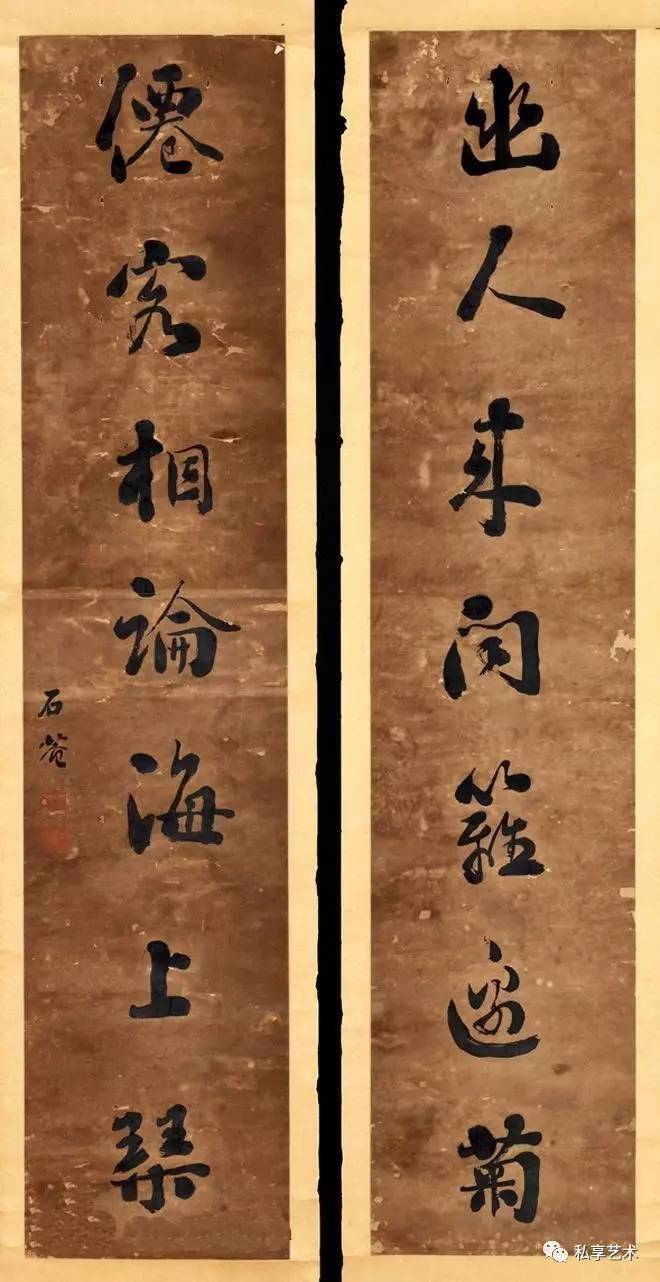 幽人來問籬邊菊
僊客相論海上琴
石菴
私享艺术